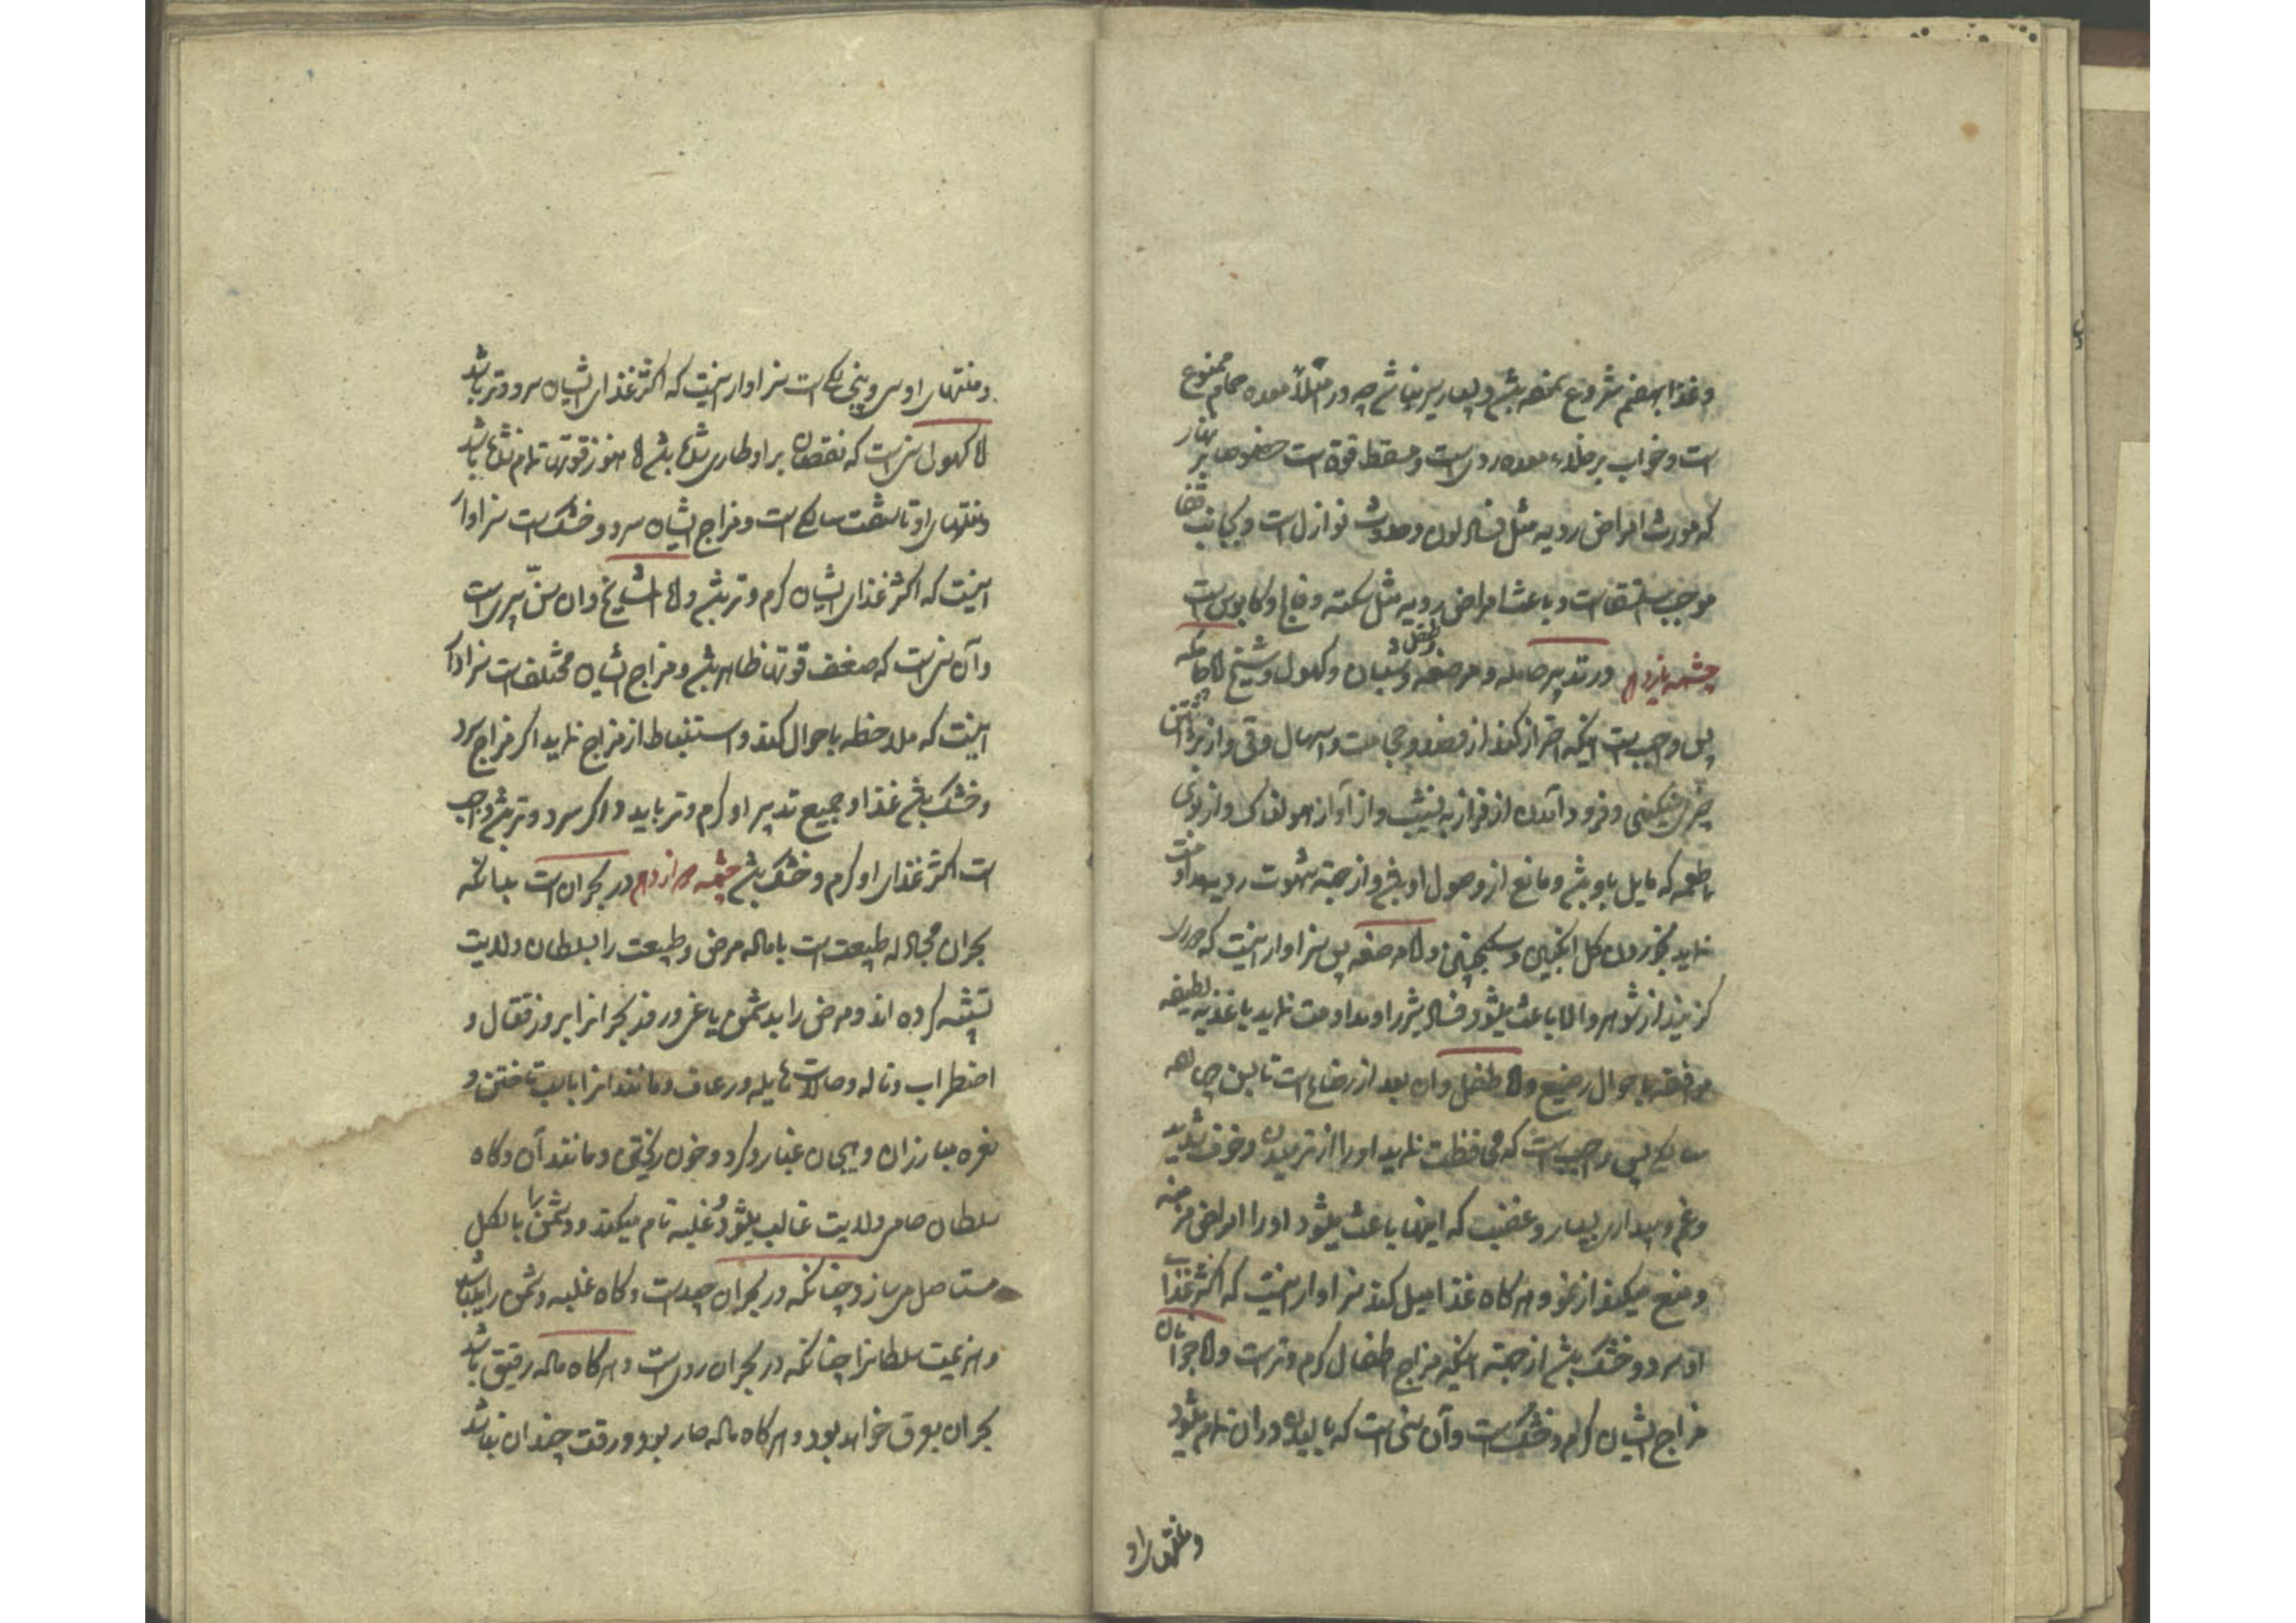 وغذا بهضم شروع نموده باشد و بسیار سیر نباشد چه در امتلاء معده حمام ممنوع
است و خواب بر خلاء معده ردی است و مسقط قوة است خصوصا بر نهار
که مورث امراض ردیه مثل فساد لون و حدوث نوازل است و بجانب قفا
موجب استلقاست و باعث امراض ردیه مثل سکته و فالج و کابوس است
چشمه یازدهم در تدبیر حامله و مرضعه و طفل و شبان و کهول و شیخ اما حامله
پس واجبست اینکه احتراز کند از فصد و حجامت و اسهال و قی و از برداشتن
چیز سنگین و فرود آمدن از فراز به نشیب و از آواز هولناک و از بوی
طعمه که مایل باو باشد و مانع از وصول او باشد و از جهة شهوت ردیه مداومت
نماید بخوردن گل انگبین و سکنجبین و اما مرضعه پس سزاوار اینست که حذر
کزیند از شوهر والا باعث میشود فساد شیر را و مداومت نماید باغذیه لطیفه
موافقه باحوال رضیع و اما طفل و ان بعد از رضاع است تا بسن چهارده
سالگی پس واجب است که محافظت نماید او را از ترسیدن و خوف شدید
و غم و بیداری بسیار و عفنیت که اینها باعث میشود او را امراض مزمنه
و منع میکند از نمو و هرگاه غذا میل کند سزاوار اینست که اکثر غذای
او سرد و خشک باشد از جهة اینکه مزاج اطفال گرم و تر است و اما جوانان
مزاج ایشان گرم و خشکست و آن سنی است که بالیدن در ان تمام میشود
و منتهای او
و منتهای او سی و پنج سالگی است سزاوار اینست که اکثر غذای ایشان سرد و تر باشد
اما کهول سنی است که نقصان بر او طاری شده باشد اما هنوز قوتها تمام نشده باشد
و منتهای او تا شصت سالگی است و مزاج ایشان سرد و خشک است سزاوار
اینست که اکثر غذای ایشان گرم و تر باشد و اما شایخ و ان سن پیری است
و آن سنیست که ضعف قوتها ظاهر باشد و مزاج ایشان مختلف است سزاوار
اینست که ملاحظه باحوال کند و استنباط از مزاج نماید اگر مزاج سرد
و خشک باشد غذا و جمیع تدبیر او گرم و تر باید و اگر سرد و تر باشد واجب
است اکثر غذای او گرم و خشک باشد چشمه دوازدهم در بحران است بدانکه
بحران مجادله طبیعت است با ماده مرض و طبیعت را بسلطان ولایت
تشبیه کرده اند و مرض را بدشمن یاغی و روز بحران را بروز قتال و
اضطراب و ناله و حالات هایله و رعاف و مانند انرا باسب تاختن و
نعره مبارزان و هیجان غبار و گرد و خون ریختن و مانند آن و گاه
سلطان حامی ولایت غالب میشود و غلبه تام میکند و دشمن را بالکل
مستاصل میسازد چنانکه در بحران جیدست و گاه غلبه دشمن را میباشد
و هزیمت سلطانرا چنانکه در بحران ردیست و هرگاه ماده رقیق باشد
بحران بعرق خواهد بود و هرگاه ماده حار بود و رقت چندان نباشد